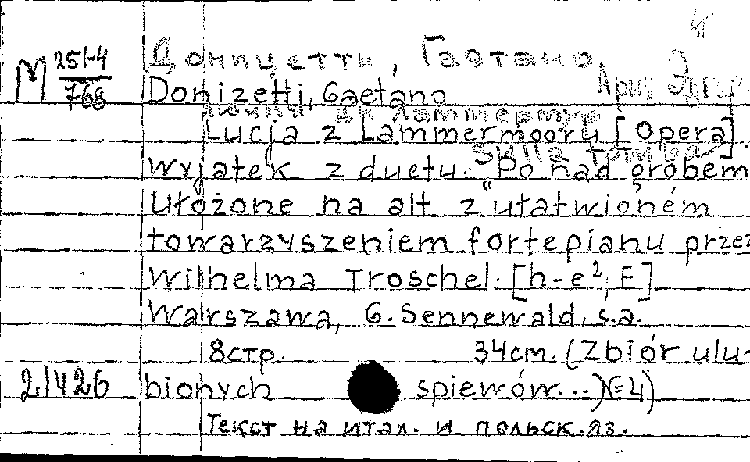 Доницетти, Гаэтано
М 251-4
768
Donizetti, Gaetano
Ария Эдгар
Лючия ди Ламмермур
Lucja z Lammermooru [Opera].
Sulla tomba
Wyjątek z duetu. "Po nad grobem
Ułożone na alt z ułatwioném
towarzyszeniem fortepianu przez
Wilhelma Troschel. [h-e²; F]
Warszawa, G. Sennewald, s.a.
8 стр. 34 cm. (Zbiór ulu-
21426 bionych spiewów... №4)
Текст на итал. и польск. яз.